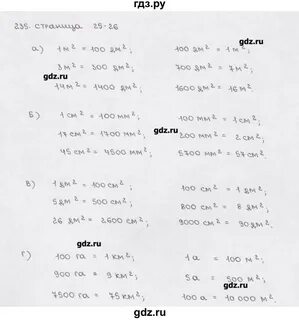 гдз.ру
235. страница 25-26
гдз.ру
а) 1 м² = 100 дм²; 100 дм² = 1 м²;
3 м² = 300 дм²; 700 дм² = 7 м²;
14 м² = 1400 дм²; 1600 дм² = 16 м².
гдз.ру
Б) 1 см² = 100 мм²; 100 мм² = 1 см²;
17 см² = 1700 мм²; 200 мм² = 2 см²;
45 см² = 4500 мм²; 5700 мм² = 57 см².
гдз.ру
в) 1 дм² = 100 см²; 100 см² = 1 дм²;
5 дм² = 500 см²; 800 см² = 8 дм²;
26 дм² = 2600 см²; 9000 см² = 90 дм².
гдз.ру
г) 100 га = 1 км²; 1 а = 100 м²;
900 га = 9 км²; 5 а = 500 м²;
7500 га = 75 км²; 100 а = 10 000 м².
гдз.ру